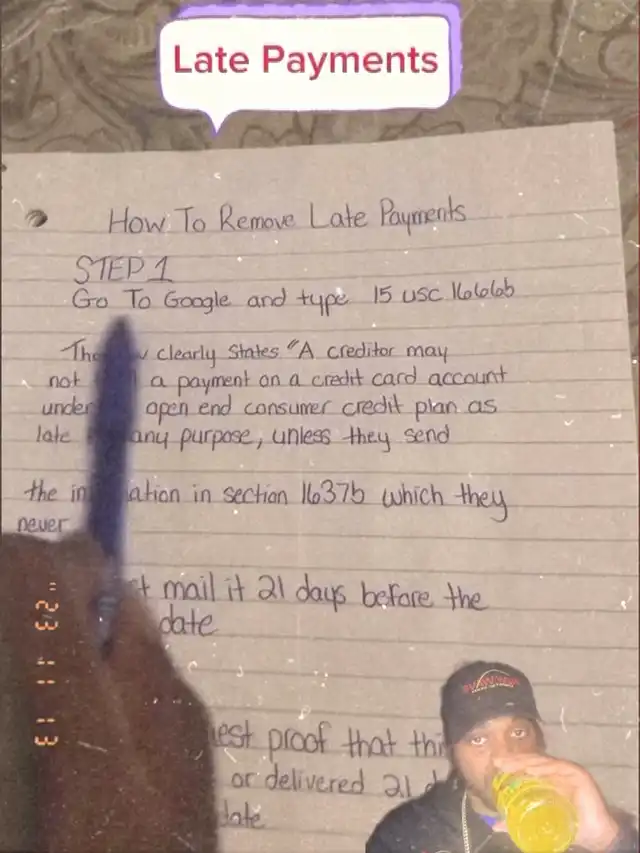 Late Payments
How To Remove Late Payments
STEP 1
Go To Google and type 15 USC 1666b
clearly States "A creditor may
not a payment on a credit card account
under open end consumer credit plan as
late any purpose, unless they send
the in ation in section 1637b which they
never
mail it 21 days before the
date
proof that thi
or delivered 21
date
'23 11 13